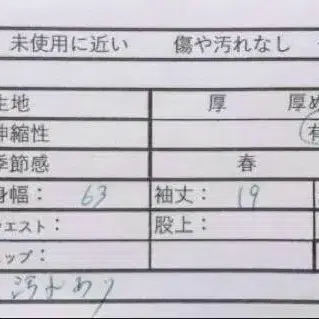 未使用に近い 傷や汚れなし
生地 厚 厚め
伸縮性 有
季節感 春
身幅： 63 袖丈： 19
ウエスト： 股上：
ップ：
汚れあり